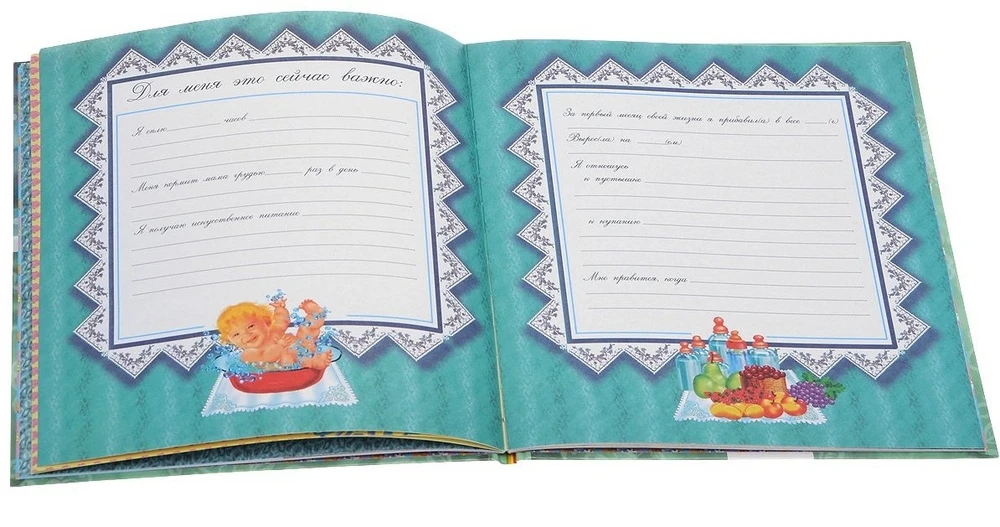 Для меня это сейчас важно:
Я сплю часов
Меня кормит мама грудью раз в день
Я получаю искусственное питание
За первый месяц своей жизни я прибавил(а) в весе (г)
Вырос(ла) на (см)
Я отношусь
к пустышке
к купанию
Мне нравится, когда